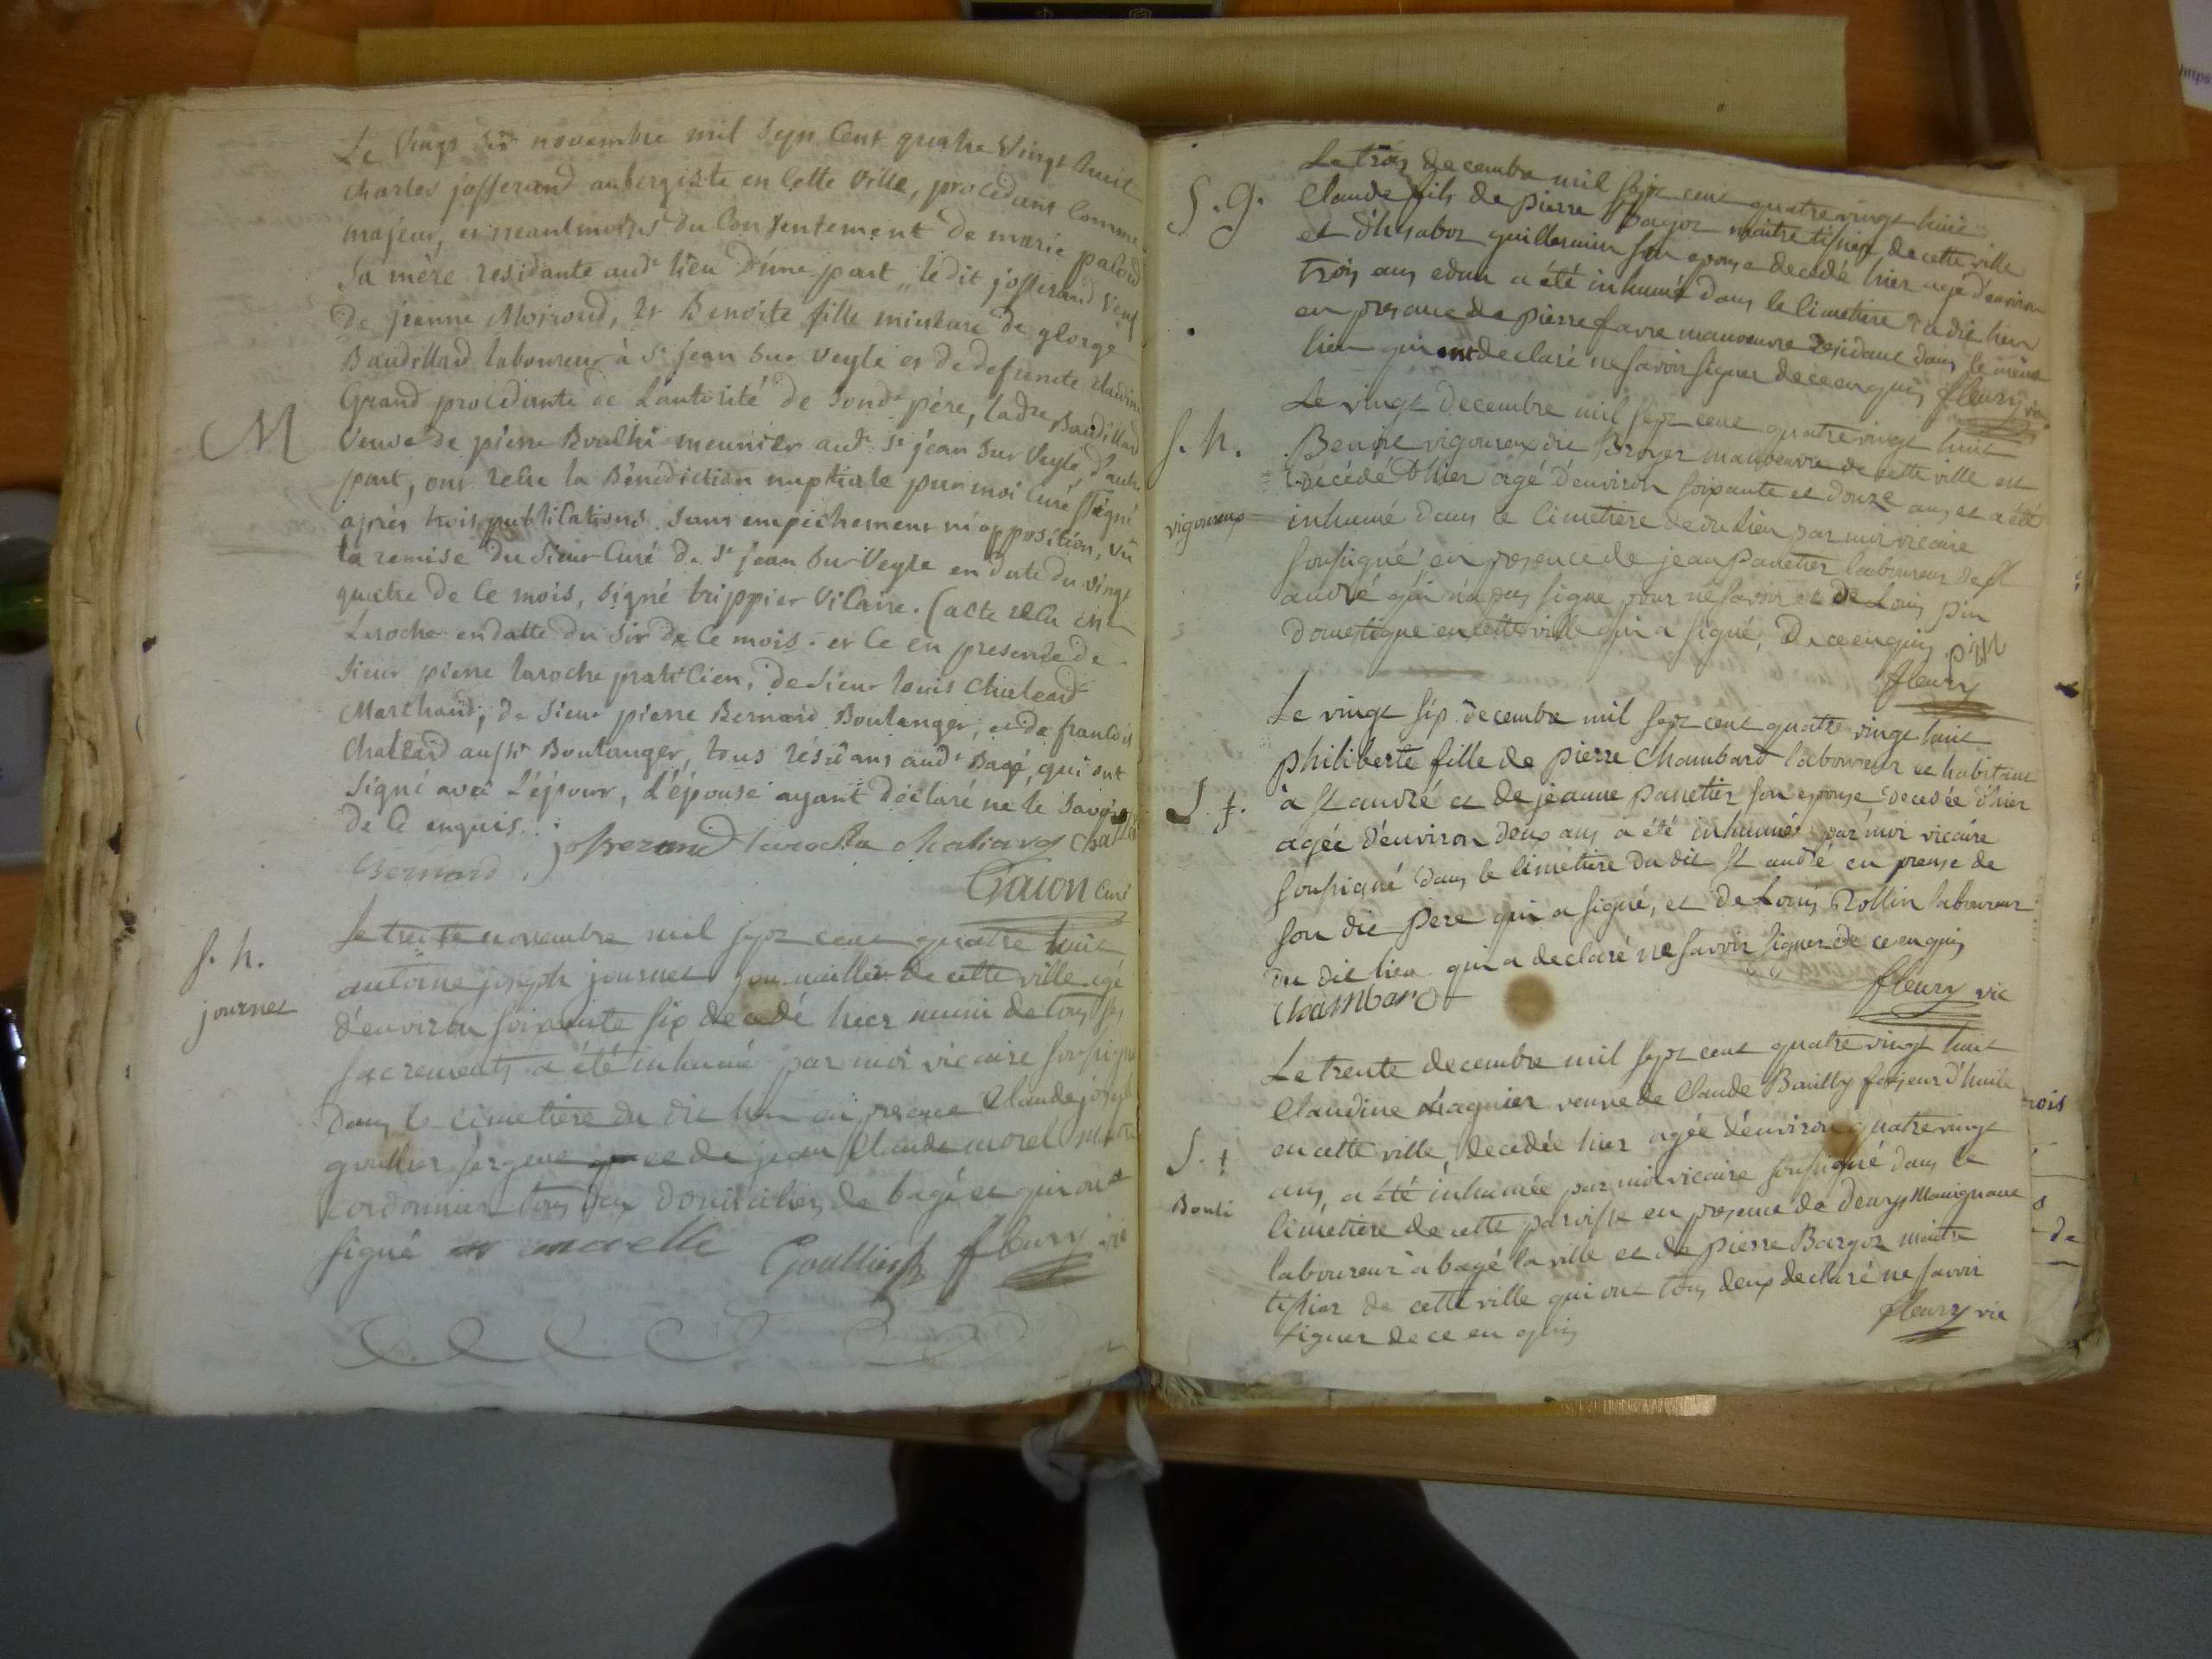 Le vingt six novembre mil sept cent quatre vingt huit
charles josserand aubergiste en cette ville, procedant comme
majeur, et neantmoins du consentement de marie
sa mère residante aud.t lieu d'une part, le dit josserand veuf
de jeanne Moiroud, et Benoite fille mineure de george
Baudillard laboureur à S.t jean sur veyle et de defunte claudine
Grand procedante de l'autorité de sond.t père, lad.te Baudillard
M
veuve de pierre meunier aud.t S.t jean sur Veyle, d'autre
part, ont recu la Bénédiction nuptiale par moi curé
après trois publications sans empéchement ni opposition, vu
la remise du sieur curé de S.t jean sur Veyle en date du vingt
quatre de ce mois, signé trippier vicaire. (acte recu
Laroche en datte du six de ce mois. et ce en presence de
sieur pierre laroche praticien, de sieur louis
Marchand, de sieur pierre Bernard Boulanger, et de francois
aussi Boulanger, tous résidans aud.t Bagé, qui ont
signé avec l'époux, l'épouse ayant déclaré ne le savoir
de ce enquis.
josserand laroche
Bernard
curé
Le trente novembre mil sept cent quatre huit
s. h.
antoine joseph journet journaillier de cette ville agé
journet
d'environ soixante six decedé hier muni de tous ses
sacrements a été inhumé par moi vicaire soussigné
dans le cimetiere du dit lieu en presence Claude joseph
goullier sergent et de jean Claude morel maitre
cordonnier tous deux domiciliés de bagé et qui ont
signé morelle fleury vic
Le trois decembre mil sept cent quatre vingt huit
S. g.
Claude fils de pierre Bagoz maitre tissier de cette ville
et d'hisabot guillermin son epouse decedé hier agé d'environ
trois ans edmi a été inhumé dans le cimetiere du dit lieu
en presence de pierre favre manoeuvre residant dans le même
lieu qui ont declaré ne savoir signer de ce enquis fleury vic
Le vingt decembre mil sept cent quatre vingt huit
s. h.
Benoit vigoureux dit Broyer manoeuvre de cette ville est
décédé d'hier agé d'environ soixante et douze ans et a été
vigoureux
inhumé dans le cimetiere de ce lieu par moi vicaire
soussigné en presence de jean Panetier laboureur de st
andré qui n'a pas signé pour ne savoir et de Louis pin
domestique en cette ville qui a signé, de ce enquis pin
fleury
Le vingt six decembre mil sept cent quatre vingt huit
philiberte fille de pierre Chambard laboureur et habitant
S. f.
à st andré et de jeanne panetier son epouse decedée d'hier
agée d'environ deux ans a été inhumée par moi vicaire
soussigné dans le cimetiere du dit st andré en presence de
son dit pere qui a signé, et de Louis Rollin laboureur
du dit lieu qui a declaré ne savoir signer de ce enquis
Chambard
fleury vic
Le trente decembre mil sept cent quatre vingt huit
Claudine veuve de Claude Bouilly d'huile
en cette ville, decedée hier agée d'environ quatre vingt
S. f
ans, a été inhumée par moi vicaire soussigné dans le
Bouli
cimetiere de cette paroisse en presence de denys
laboureur à bagé la ville et de pierre Bargoz maitre
tissier de cette ville qui ont tous deux declaré ne savoir
signer de ce enquis
fleury vic
rois
de